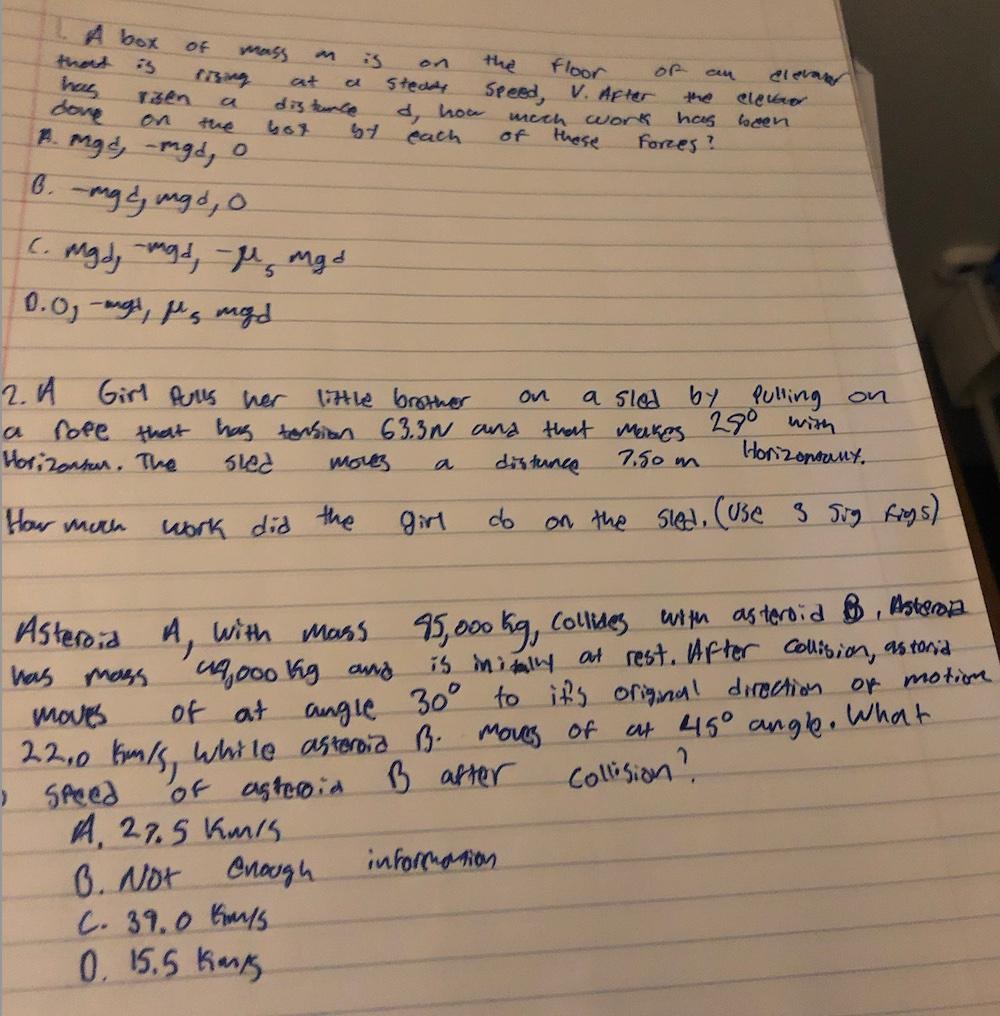 1. A box of mass m is on the floor of an elevator
that is rising at a steady speed, V. After the elevator
has risen a distance d, how much work has been
done on the box by each of these forces?
A. mgd, -mgd, 0
B. -mgd, mgd, 0
C. mgd, -mgd, -μs mgd
D. 0, -mgd, μs mgd
2. A Girl Pulls her little brother on a sled by Pulling on
a rope that has tension 63.3N and that makes 29° with
Horizontan. The sled moves a distance 7.50 m Horizontally.
How much work did the girl do on the sled. (Use 3 Sig figs)
Asteroid A, with mass 95,000 kg, collides with asteroid B, Asteroid
has mass 49,000 kg and is initally at rest. After collision, astorid
moves of at angle 30° to it's original direction of motion
22.0 km/s, while asteroid B. moves of at 45° angle. What
speed of asteroid B after collision?
A. 27.5 Km/s
B. Not enough information
C. 39.0 km/s
D. 15.5 km/s